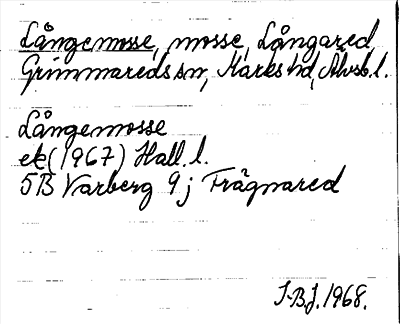 Långemosse, mosse, Långared,
Grimmareds sn, Marks hd, Älvsb. l.
Långemosse
ek (1967) Hall. l.
5B Varberg 9j Frägnared
I.B.J. 1968.